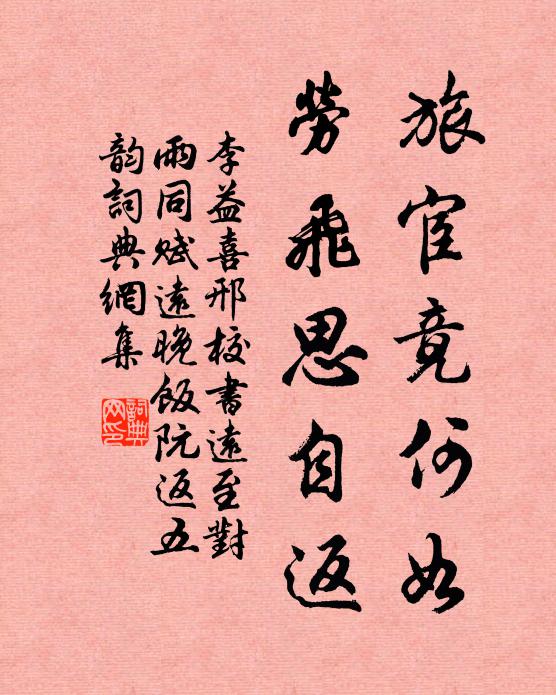 旅宦竟何如
勞飛思自返
李益喜邢校書遠至對
雨同賦遠晚飯阮返五
韵詞典網集
詞典
网印